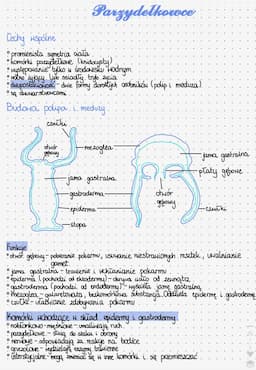 Parzydełkowce
Cechy wspólne
* promienista symetria ciała
* komórki parzydełkowe (knidocyty)
* występowanie tylko w środowisku wodnym
* wolno żyjący lub osiadły tryb życia
* dwupostaciowość - dwie formy dorosłych osobników (polip i meduza)
* są dwuwarstwowcami
Budowa polipa i meduzy
czułki
otwór gębowy
mezoglea
jama gastralna
gastroderma
epiderma
stopa
jama gastralna
płaty gębowe
otwór gębowy
czułki
Funkcje
* otwór gębowy - pobieranie pokarmu, usuwanie niestrawionych resztek, uwalnianie gamet
* jama gastralna - trawienie i wchłanianie pokarmu
* epiderma (pochodzi od ektodermy) - okrywa ciało od zewnątrz
* gastroderma (pochodzi od endodermy) - wyściela jamę gastralną
* mezoglea - galaretowata, bezkomórkowa substancja. Oddziela epidermę i gastrodermę
* czułki - ułatwianie zdobywania pokarmu
Komórki wchodzące w skład epidermy i gastrodermy:
* nabłonkowo-mięśniowe - umożliwiają ruch
* parzydełkowe - służą do ataku i obrony
* nerwowe - odpowiadają za reakcje na bodźce
* gruczołowe - wydzielają enzymy trawienne
* interstycjalne - mogą zmieniać się w inne komórki i się przemieszczać